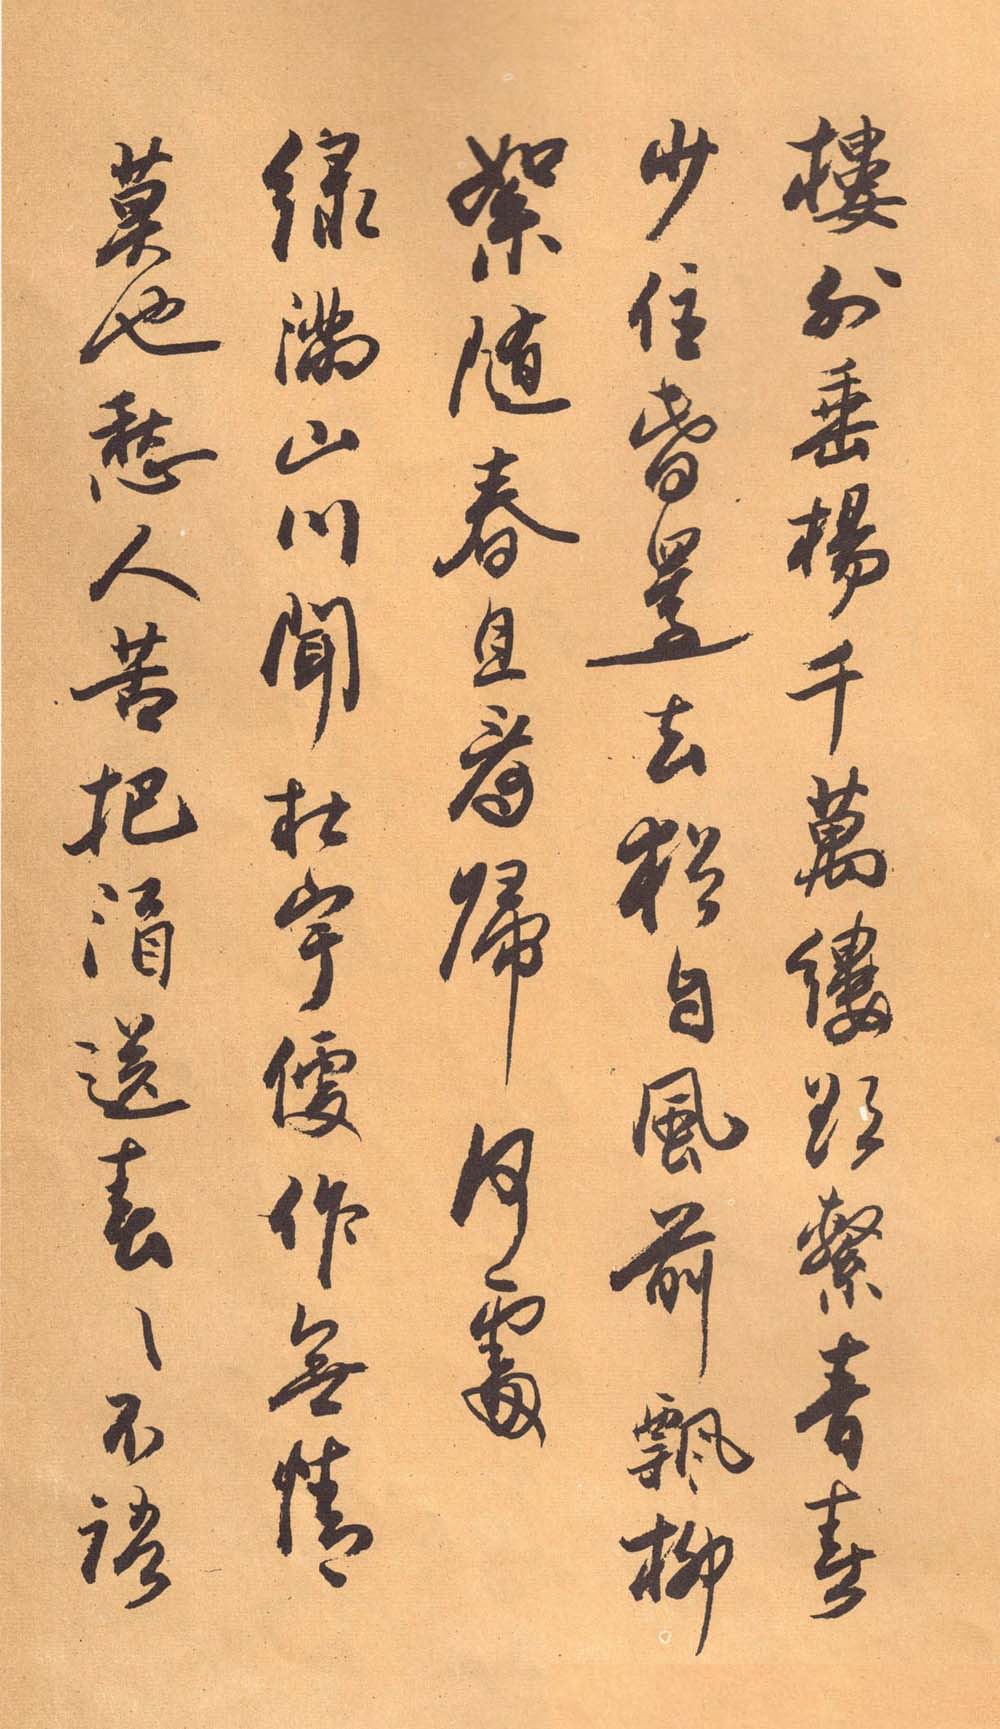 樓外垂楊千萬縷欲繫青春
少住旾還去猶自風前飄柳
絮隨春且看歸何處
綠滿山川聞杜宇便作無情
莫也愁人苦把酒送春〻不語